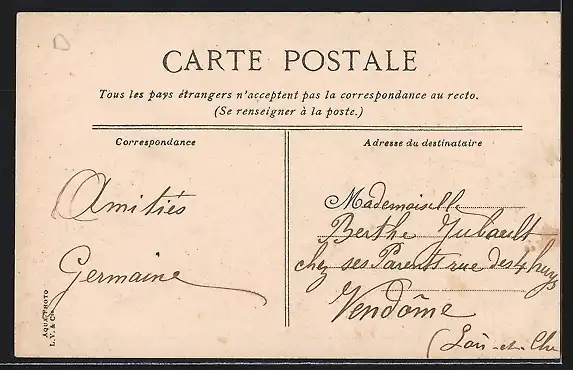 CARTE POSTALE
Tous les pays étrangers n'acceptent pas la correspondance au recto.
(Se renseigner à la poste.)
Correspondance
Amitiés
Germaine
AQUA PHOTO
L. V. & Cie
Adresse du destinataire
Mademoiselle
Berthe Jubault
chez ses Parents rue des 4 huys
Vendôme
(Loir-et-Che